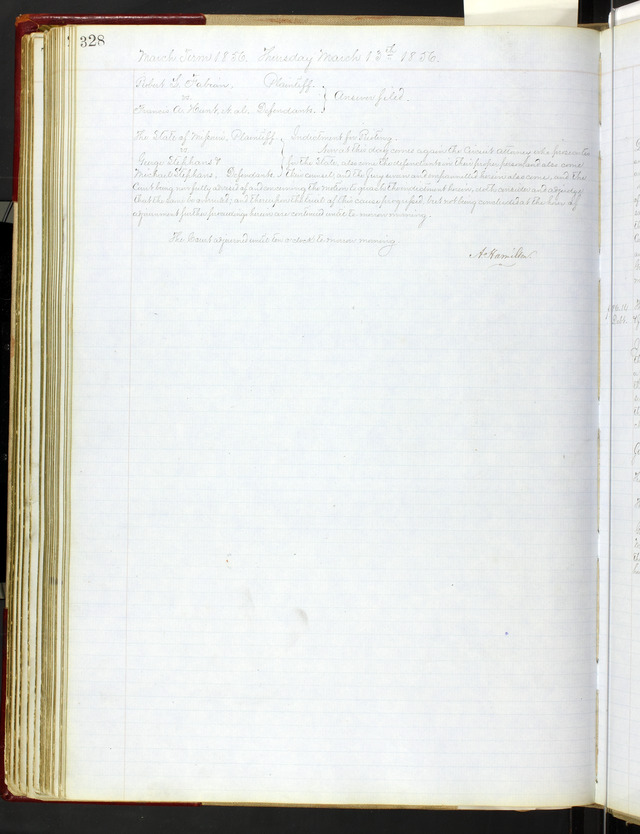 328
March Term 1856 Thursday March 13th 1856.
Robert L. Fabrian. Plaintiff.
vs
Francis A. Hunt, et al. Defendants.
Answer filed.
The State of Missouri, Plaintiff
vs
George Stephans &
Michael Stephans. Defendants.
Indictment for Rioting.
Now at this day come again the Circuit Attorney who prosecutes
for the State, also come the defendants in their proper persons and also come
their counsel, and the Jury sworn and empannelled herein also come, and the
Court being now fully advised of and concerning the motion to quash the indictment herein, doth consider and adjudge
that the same be overruled; and thereupon the trial of this cause progressed, but not being concluded at the hour of
adjournment further proceedings herein are continued until to morrow morning.
The Court adjourned until ten o'clock to morrow morning
A. Hamilton